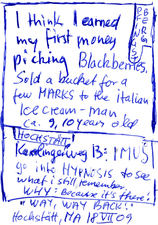 I think I earned
my first money
picking Blackberries.
Sold a bucket for a
few MARKS to the Italian
Ice cream-man
ca. 9, 10 years old
HOCHSTÄTT
13: I MUST
go into HYPNOSIS to see
what I still remember.
WHY? Because it's there!
"WAY, WAY BACK!"
Hochstätt, MA 18 VII 09